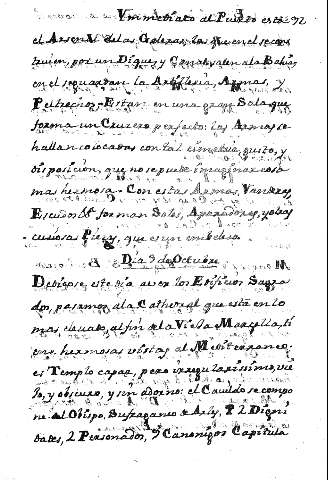 Ynmediato al Puerto está
el Arsenal de las Galeras, las que en el se cons
truien, por un Dique, y Canal salen a la Bahia
en el se guardan la Artilleria, Armas, y
Peltrechos. Estan en una gran Sala que
forma un Cruzero perfecto: las Armas se
hallan colocadas con tal simetria, gusto, y
disposicion, que no se puede imaginar cosa
mas hermosa. Con estas Armas, Vanderas,
Escudos &. forman Soles, Aparadores, y otras
curiosas Piezas, que es un embeleso.
Dia 9 de Octubre
Debiose, este dia a ver los Edificios Sagra
dos, pasamos a la Cathedral que está en lo
mas elevado, al fin de la Vieja Marcella, ti
ene hermosas vistas al Mediterraneo,
es Templo capaz, pero irregularisimo, vie
jo, y obscuro, y sin adorno: el Cavildo se compo
ne del Obispo, Sufraganeo de Arly, 12 Digni
dades, 2 Personados, 9 Canonigos Capitula